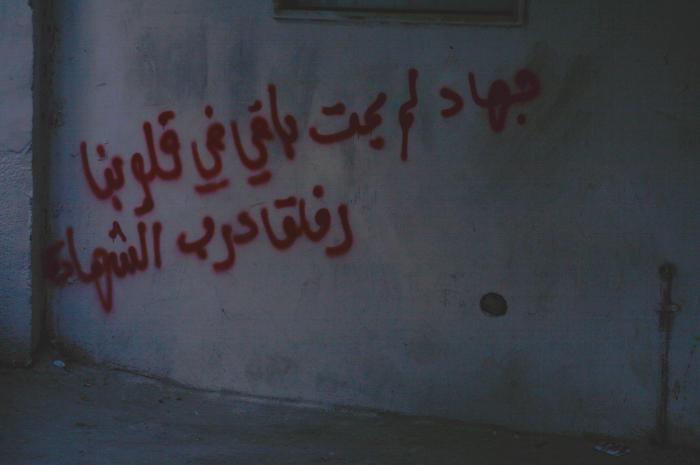 جهاد لم يمت باقي في قلوبنا
رفلقا درب الشهادة